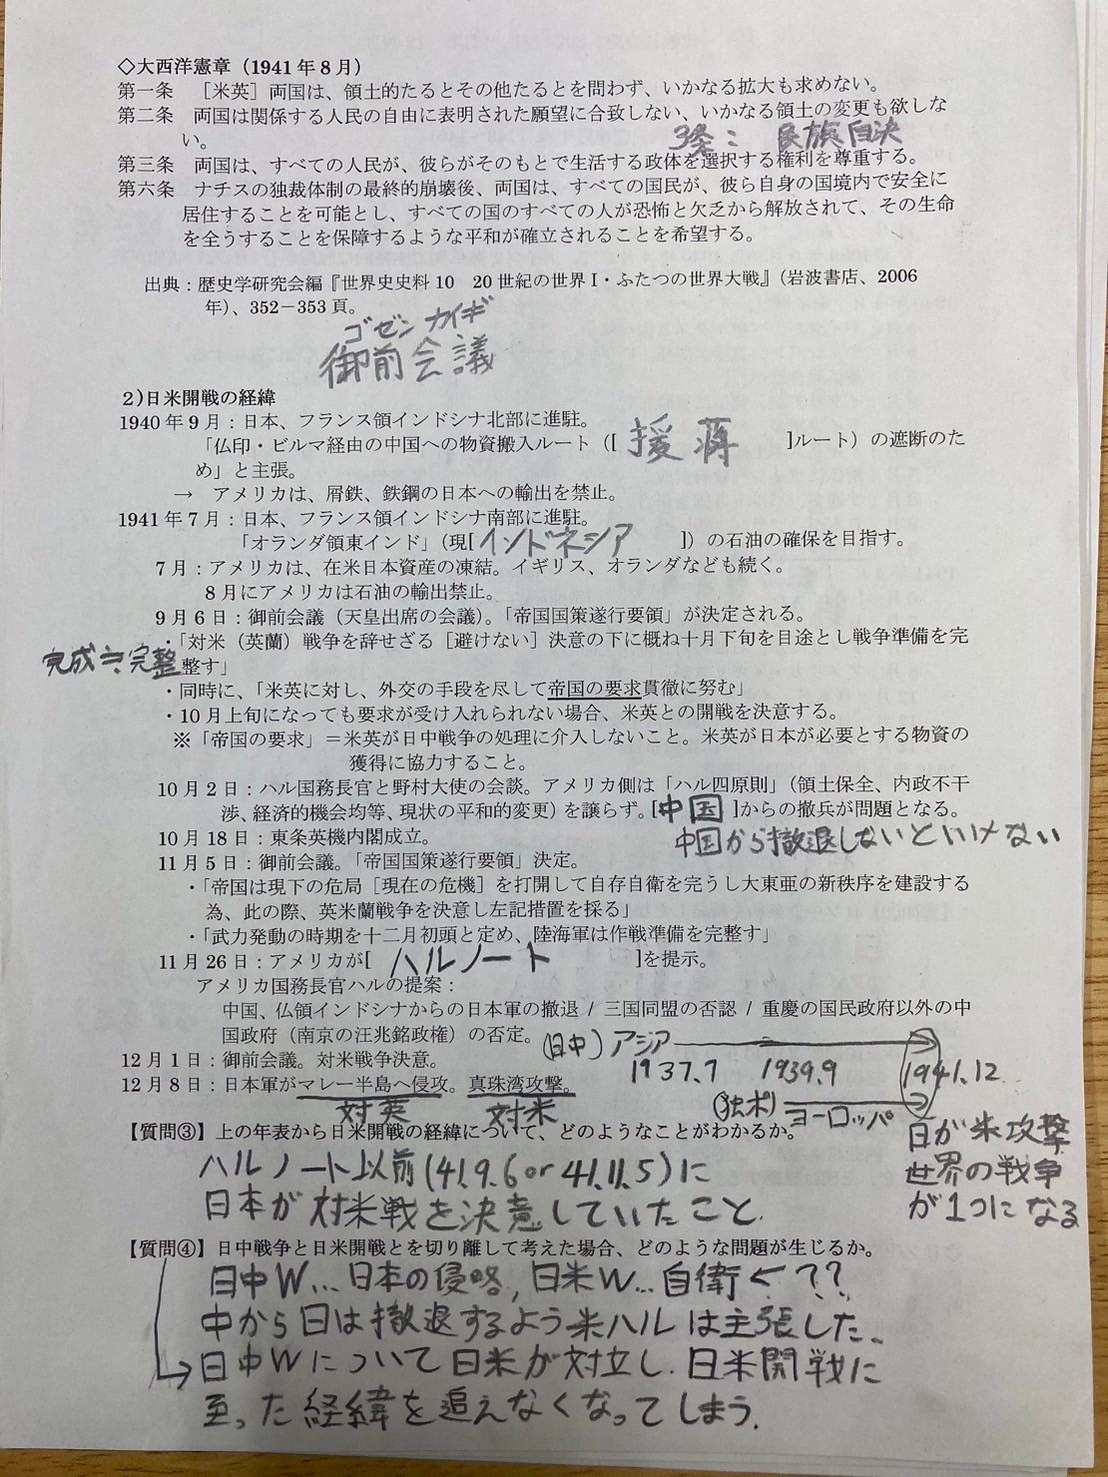 ◇大西洋憲章（1941年8月）
第一条　［米英］両国は、領土的たるとその他たるとを問わず、いかなる拡大も求めない。
第二条　両国は関係する人民の自由に表明された願望に合致しない、いかなる領土の変更も欲しな
い。
3条： 民族自決
第三条　両国は、すべての人民が、彼らがそのもとで生活する政体を選択する権利を尊重する。
第六条　ナチスの独裁体制の最終的崩壊後、両国は、すべての国民が、彼ら自身の国境内で安全に
居住することを可能とし、すべての国のすべての人が恐怖と欠乏から解放されて、その生命
を全うすることを保障するような平和が確立されることを希望する。
出典：歴史学研究会編『世界史史料10　20世紀の世界Ⅰ・ふたつの世界大戦』（岩波書店、2006
年）、352－353頁。
ゴゼンカイギ
御前会議
2）日米開戦の経緯
1940年9月：日本、フランス領インドシナ北部に進駐。
「仏印・ビルマ経由の中国への物資搬入ルート（[ 援蔣 ]ルート）の遮断のた
め」と主張。
→　アメリカは、屑鉄、鉄鋼の日本への輸出を禁止。
1941年7月：日本、フランス領インドシナ南部に進駐。
「オランダ領東インド」（現[ インドネシア ]）の石油の確保を目指す。
7月：アメリカは、在米日本資産の凍結。イギリス、オランダなども続く。
8月にアメリカは石油の輸出禁止。
9月6日：御前会議（天皇出席の会議）。「帝国国策遂行要領」が決定される。
・「対米（英蘭）戦争を辞せざる［避けない］決意の下に概ね十月下旬を目途とし戦争準備を完
整す」
完成≒完整
・同時に、「米英に対し、外交の手段を尽して帝国の要求貫徹に努む」
・10月上旬になっても要求が受け入れられない場合、米英との開戦を決意する。
※「帝国の要求」＝米英が日中戦争の処理に介入しないこと。米英が日本が必要とする物資の
獲得に協力すること。
10月2日：ハル国務長官と野村大使の会談。アメリカ側は「ハル四原則」（領土保全、内政不干
渉、経済的機会均等、現状の平和的変更）を譲らず。[中国 ]からの撤兵が問題となる。
10月18日：東条英機内閣成立。
中国から撤退しないといけない
11月5日：御前会議。「帝国国策遂行要領」決定。
・「帝国は現下の危局［現在の危機］を打開して自存自衛を完うし大東亜の新秩序を建設する
為、此の際、英米蘭戦争を決意し左記措置を採る」
・「武力発動の時期を十二月初頭と定め、陸海軍は作戦準備を完整す」
11月26日：アメリカが[ ハルノート ]を提示。
アメリカ国務長官ハルの提案：
中国、仏領インドシナからの日本軍の撤退 / 三国同盟の否認 / 重慶の国民政府以外の中
国政府（南京の汪兆銘政権）の否定。
(日中) アジア
12月1日：御前会議。対米戦争決意。
1937.7 1939.9 1941.12
12月8日：日本軍がマレー半島へ侵攻。真珠湾攻撃。
対英 対米
(独ポ) ヨーロッパ
日が米攻撃
世界の戦争
が1つになる
【質問③】上の年表から日米開戦の経緯について、どのようなことがわかるか。
ハルノート以前(41.9.6 or 41.11.5)に
日本が対米戦を決意していたこと.
【質問④】日中戦争と日米開戦とを切り離して考えた場合、どのような問題が生じるか。
日中W…日本の侵略, 日米W…自衛←??
中から日は撤退するよう米ハルは主張した、
→日中Wについて日米が対立し、日米開戦に
至った経緯を追えなくなってしまう.